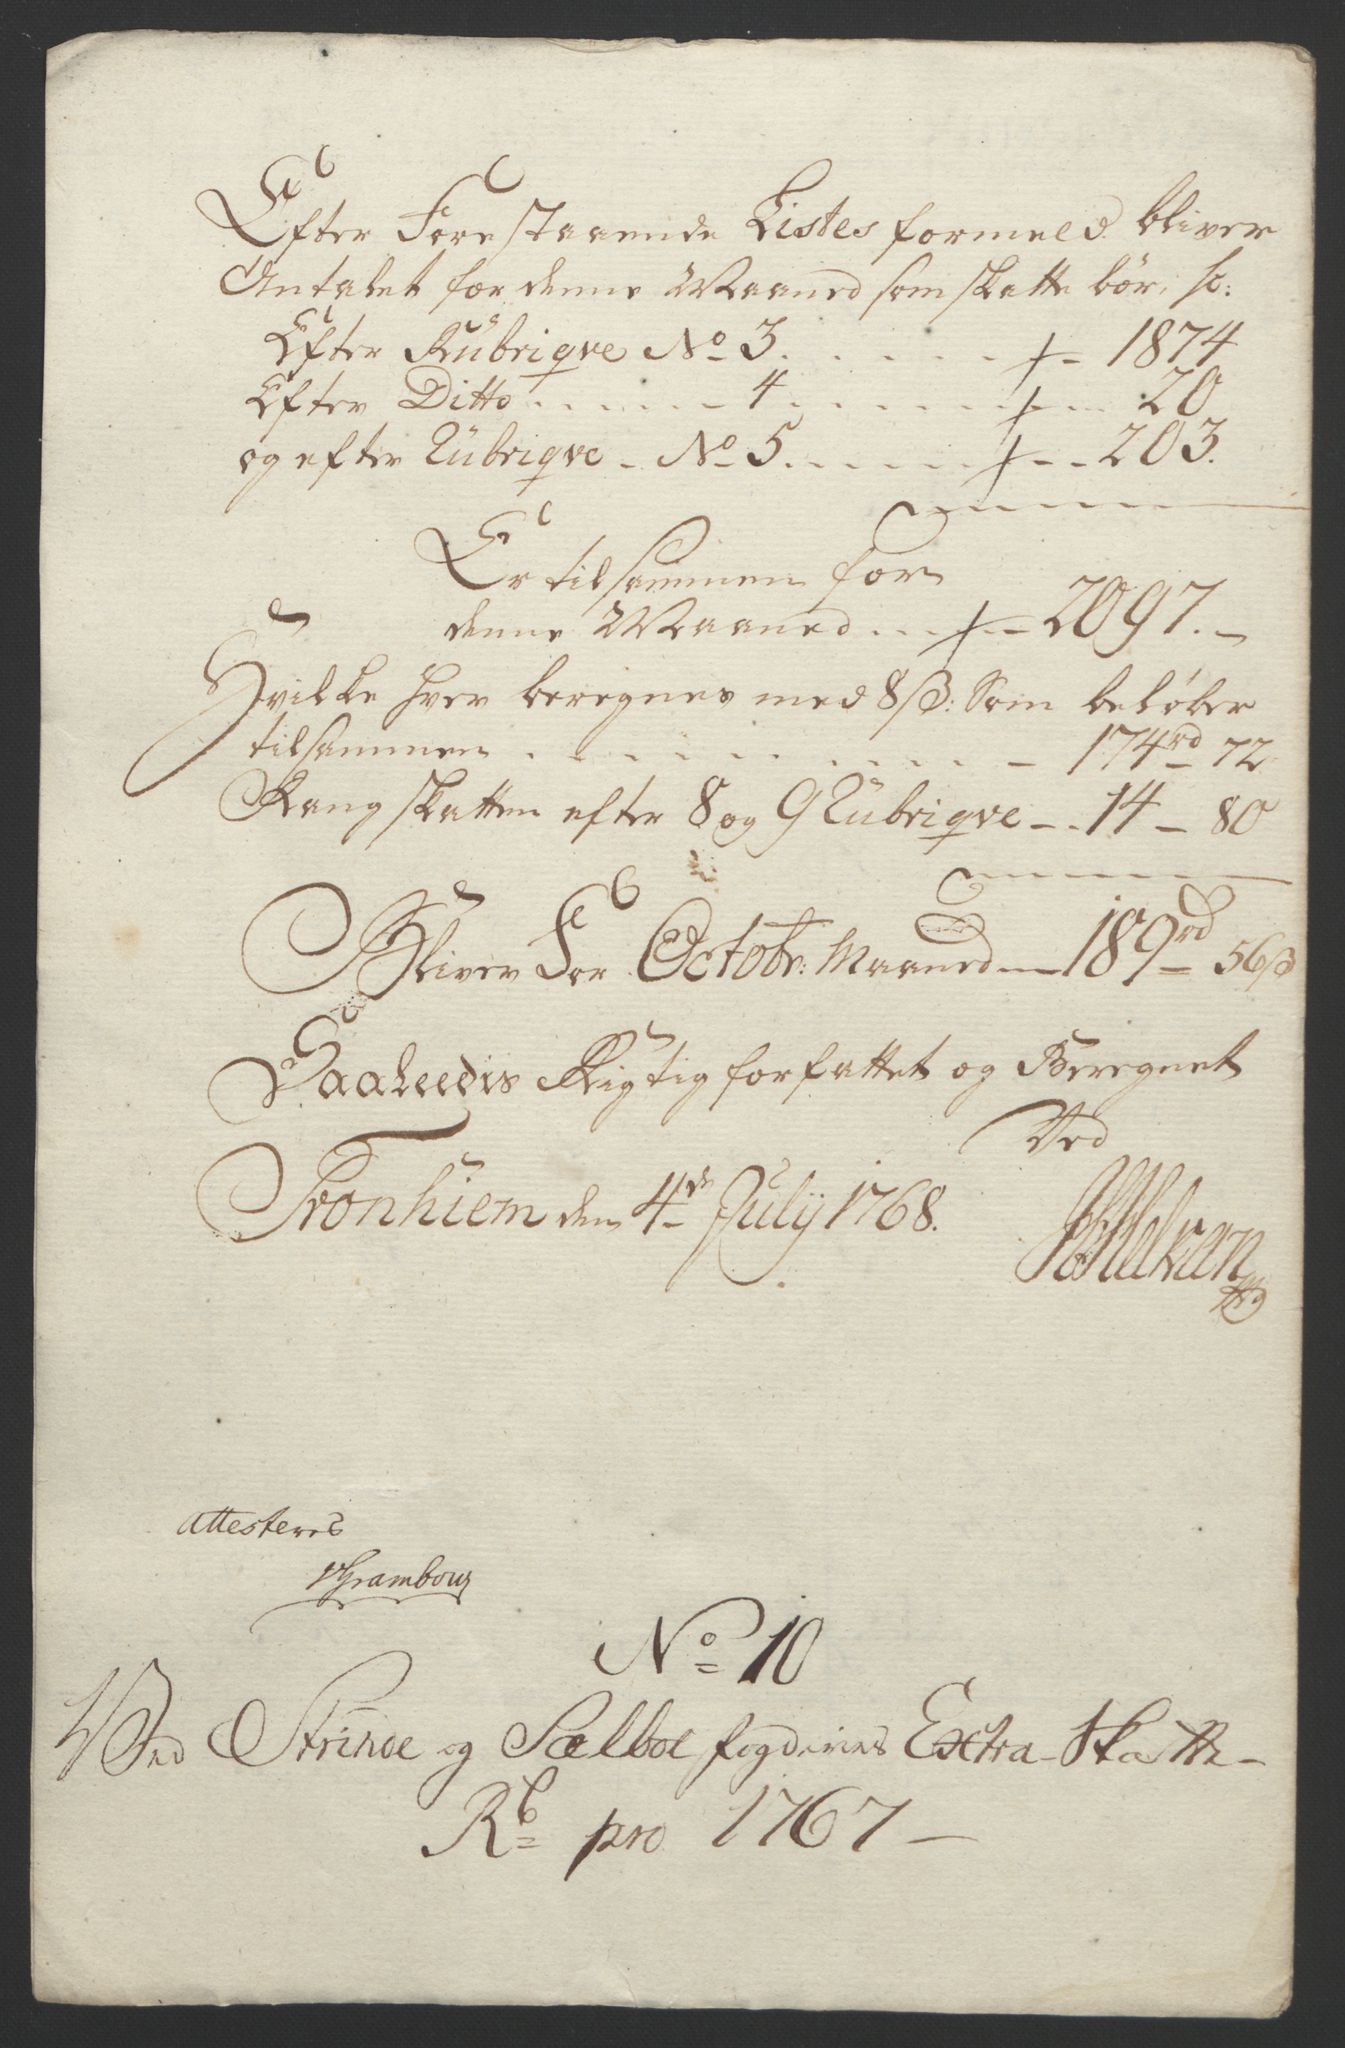 Efter Forestaaende Listes formeld bliver
Antalet for denne Maaned som skatte bør, sc:
Efter Rübriqve No 3 . . . . . . 1874
Efter Ditto . . . . . 4 . . . . . . 20
og efter Rübriqve . No 5 . . . . . . 203.
Er tilsammen for
denne Maaned . . . 2097. -
Hvilke hver beregnes med 8 ß: Som beløber
tilsammen . . . . . . . . . . 174 rd 72
Rang skatten efter 8 og 9 Rübriqve - . 14 - 80
Bliver For Octobr: Maaned - 189 rd 56 ß
Saaleedis Rigtig forfattet og Beregnet
Ved
Tronhiem den 4de July 1768.
Attesteres
No 10
Ved Strinde og Sælboe fogderies Extra-Skatte-
Rb pro 1767 -